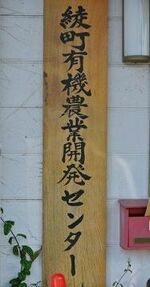 綾町有機農業開発センター